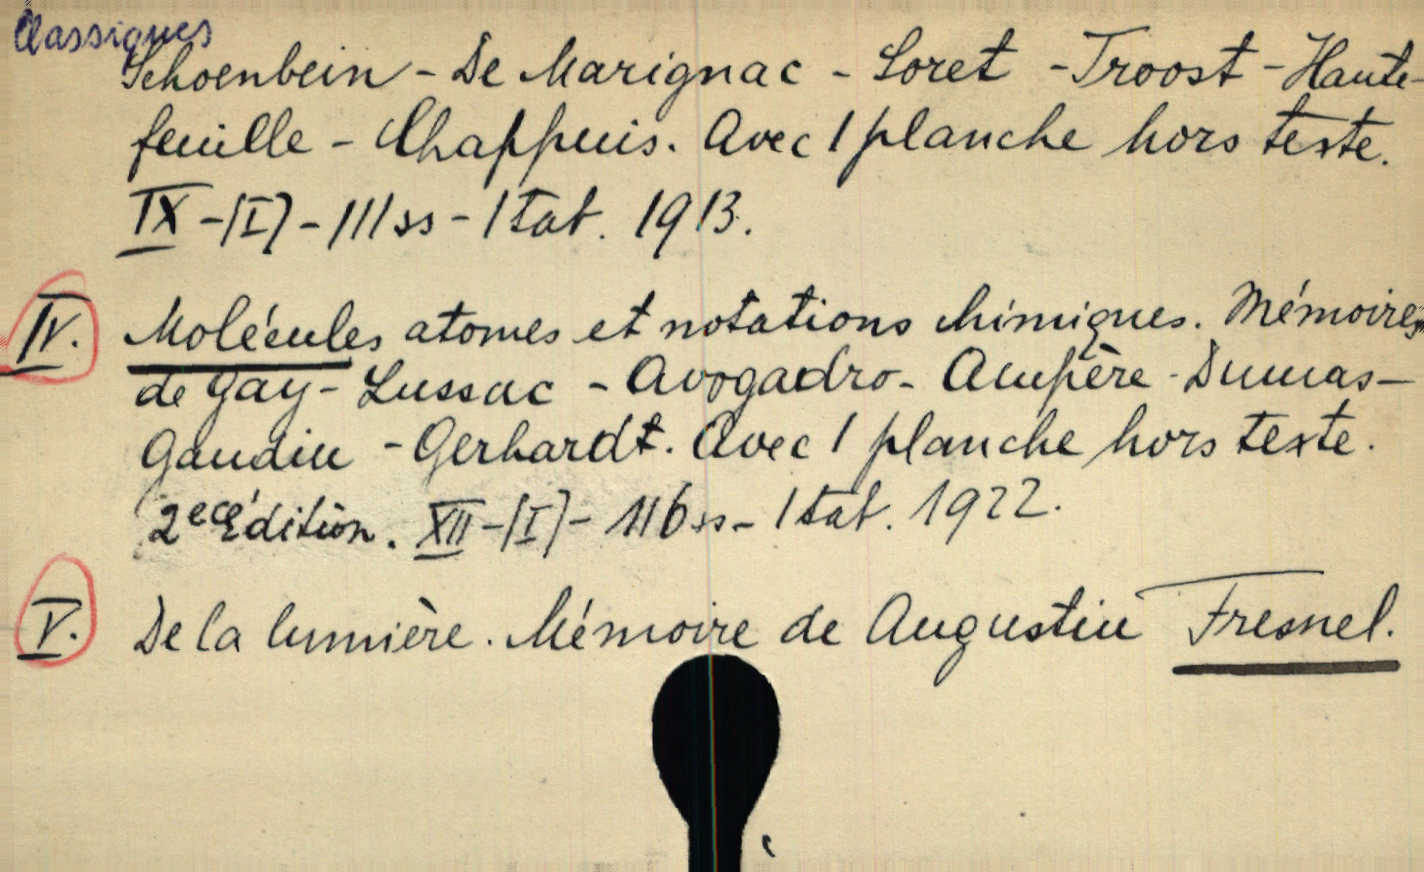 Classiques
Schoenbein - De Marignac - Soret - Troost - Haute-
feuille - Chappuis. Avec 1 planche hors texte.
IX - [I] - 111 ss - 1 tab. 1913.
IV. Molécules atomes et notations chimiques. Mémoires
de Gay-Lussac - Avogadro - Ampère - Dumas -
Gaudin - Gerhardt. Avec 1 planche hors texte.
2e édition. XII - [I] - 116 ss - 1 tab. 1922.
V. De la lumière. Mémoire de Augustin Fresnel.